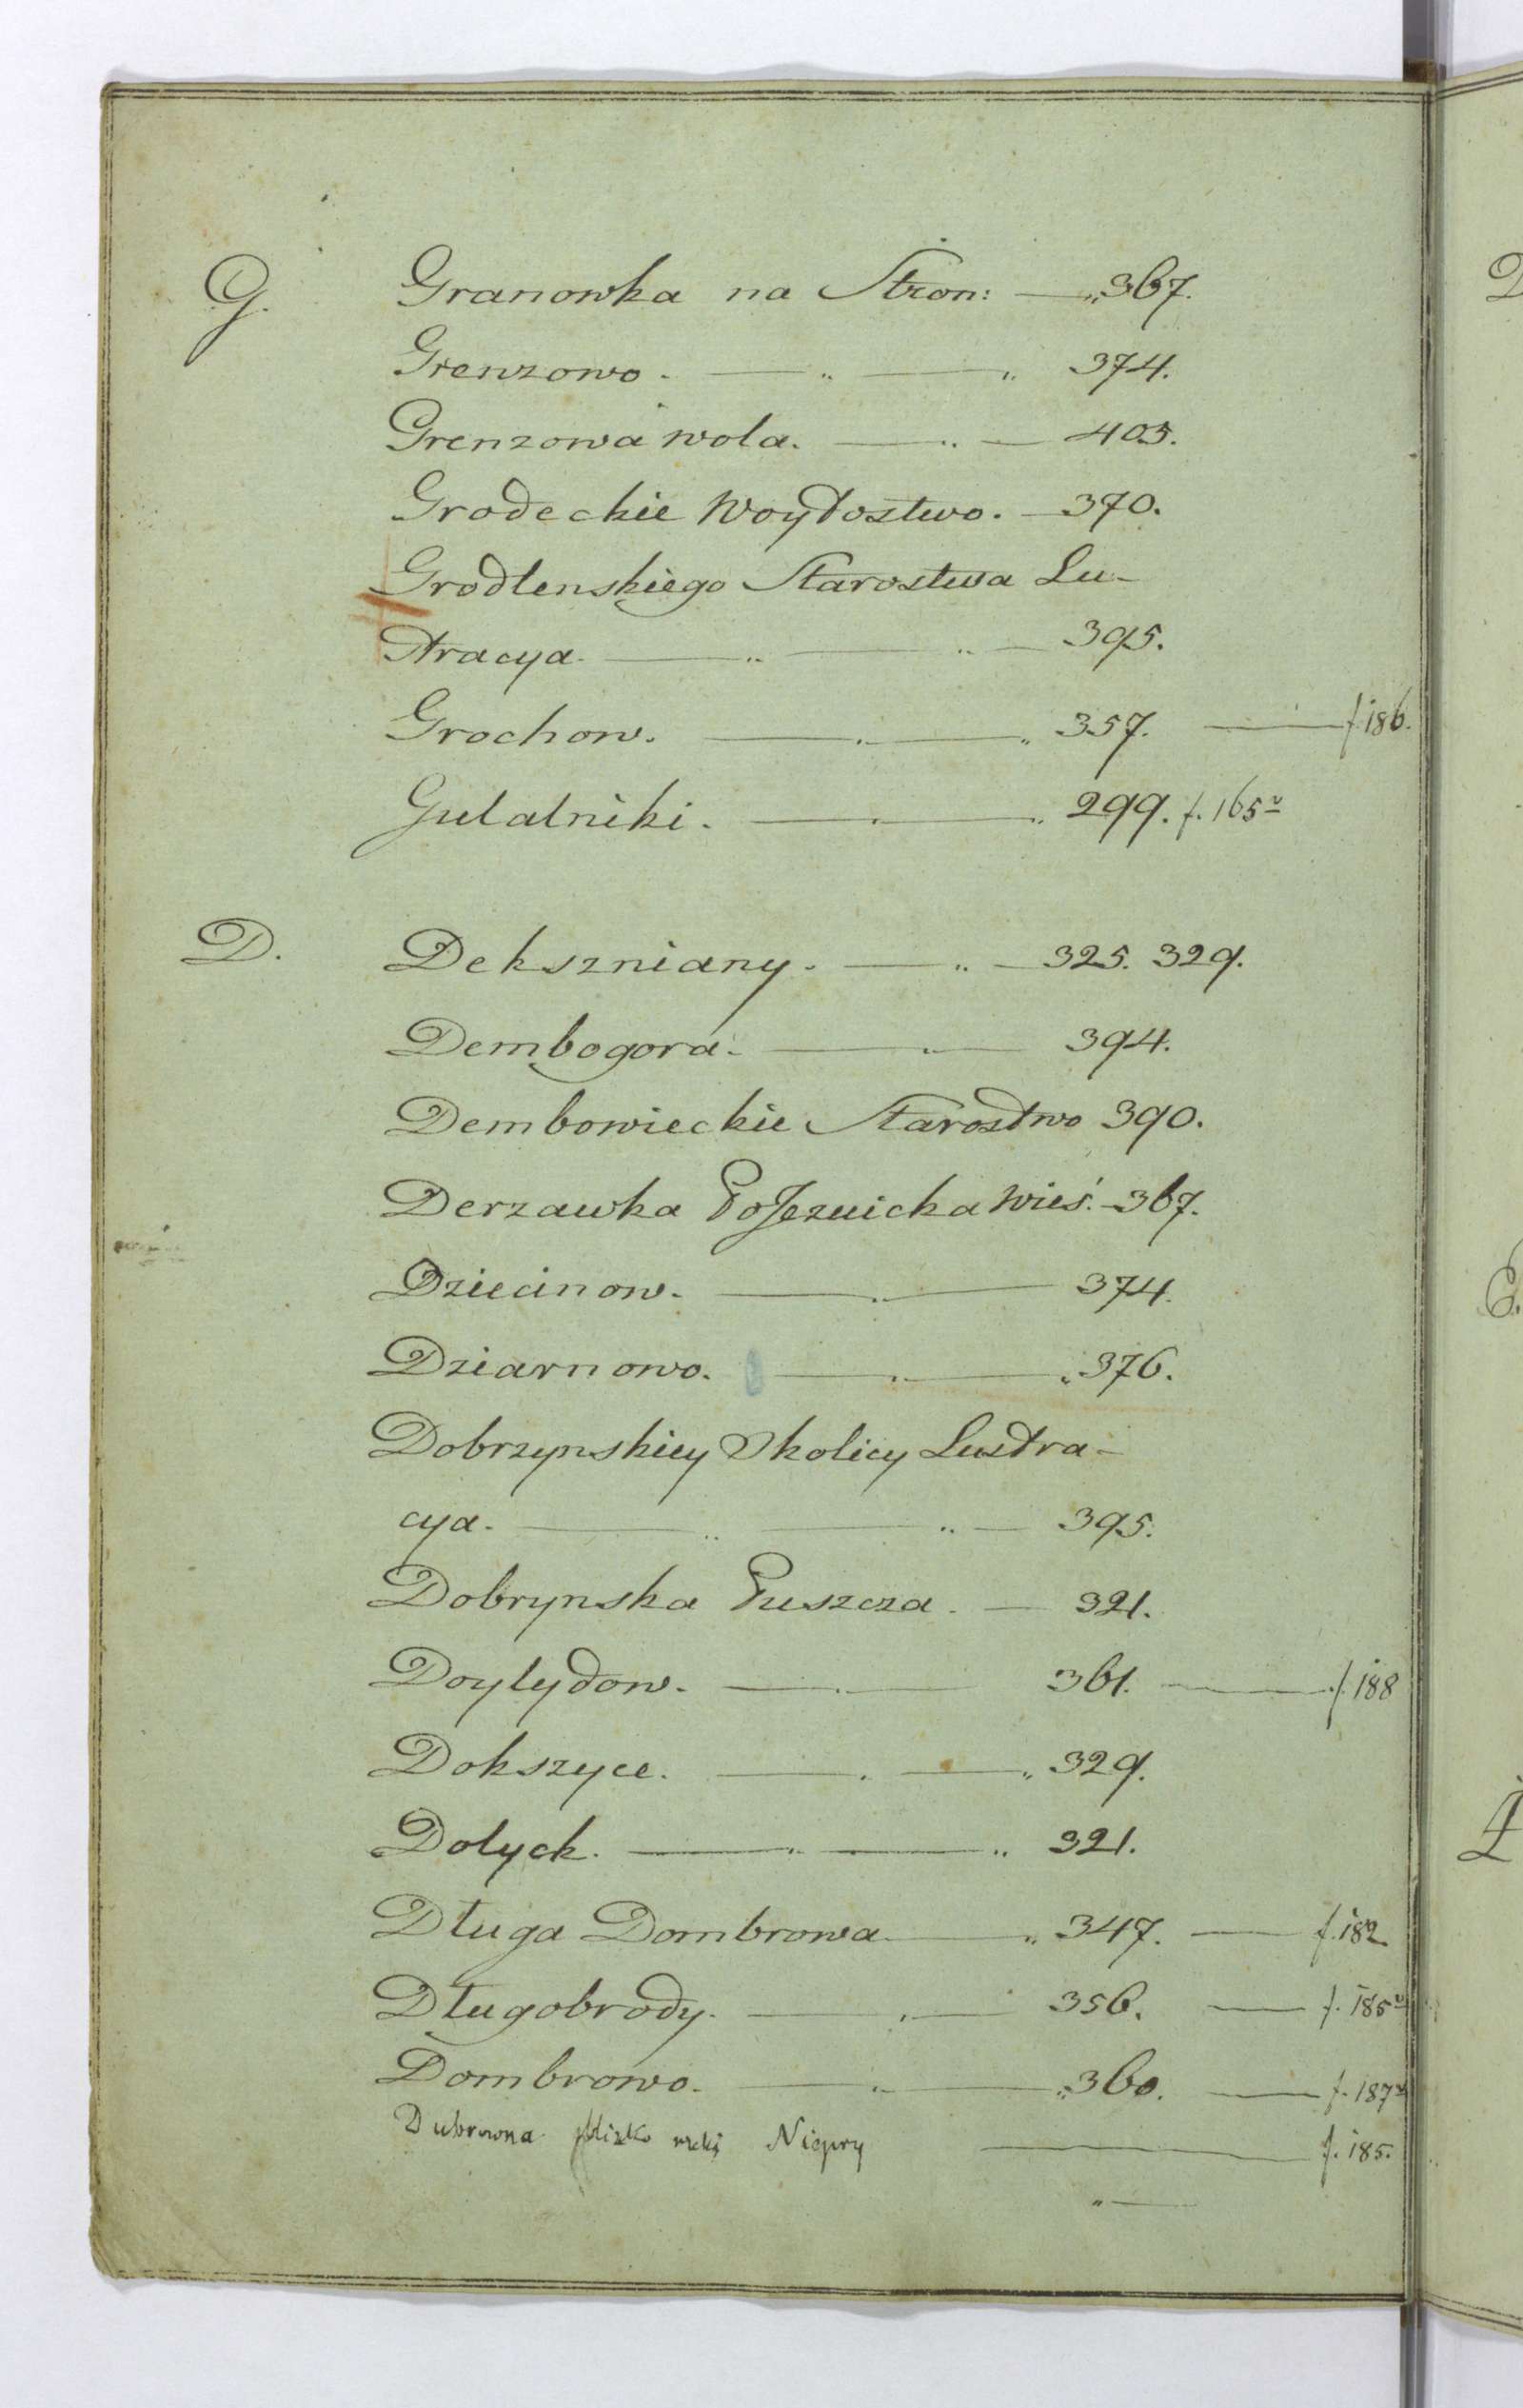 G. Granowka na Stron: — „ 367.
Grenzowo. — „ — „ 374.
Grenzowa wola. — „ — 405.
Grodeckie Woytostwo. — 370.
Grodlenskiego Starostwa Lu-
stracya. — „ — „ — 395.
Grochow. — „ — „ 357. — f. 186.
Gulalniki. — „ — „ 299. f. 165v
D. Dekszniany. — „ — 325. 329.
Dembogora. — „ — 394.
Dembowieckie Starostwo 390.
Derzawka PoJezuicka Wieś. — 367.
Dziecinow. — „ — 374.
Dziarnowo. — „ — „ 376.
Dobrzynskiey Okolicy Lustra-
cya. — „ — „ — 395.
Dobrynska Puszcza. — 321.
Doylydow. — „ — 361. — f. 188
Dokszyce. — „ — „ 329.
Dolyck. — „ — „ 321.
Długa Dombrowa — „ 347. — f. 182
Długobrody. — „ — 356. — f. 185v
Dombrowo. — „ — „ 360. — f. 187v
Dubrowna blizko rzeki Niepry — f. 185.
„ —